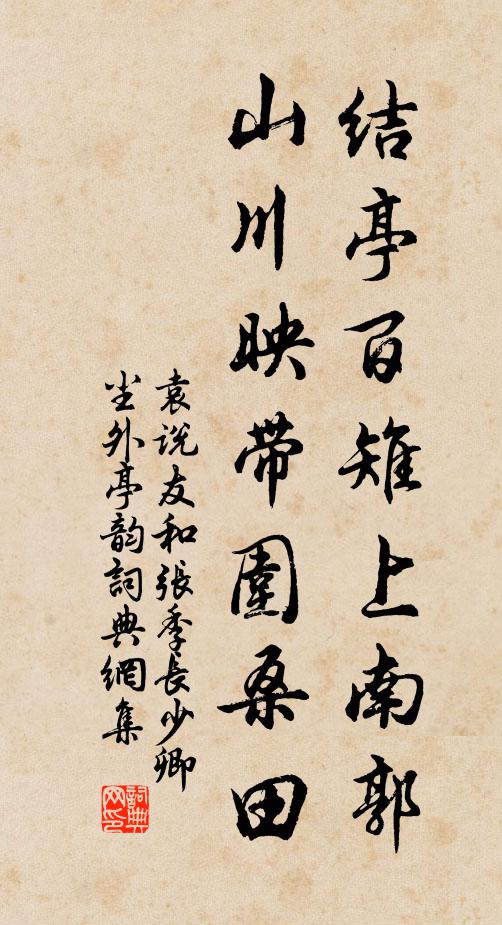 结亭百雉上南郭
山川映带围桑田
袁说友和张季长少卿
尘外亭韵词典网集
词典网印